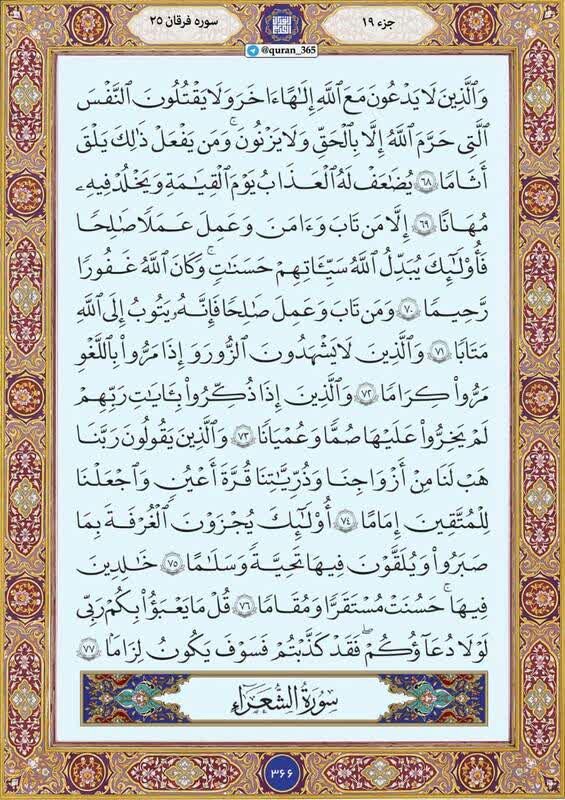 جزء ۱۹
سوره فرقان ۲۵
@quran_365
وَٱلَّذِينَ لَا يَدْعُونَ مَعَ ٱللَّهِ إِلَٰهًا ءَاخَرَ وَلَا يَقْتُلُونَ ٱلنَّفْسَ
ٱلَّتِي حَرَّمَ ٱللَّهُ إِلَّا بِٱلْحَقِّ وَلَا يَزْنُونَ ۚ وَمَن يَفْعَلْ ذَٰلِكَ يَلْقَ
أَثَامًا ۶۸ يُضَٰعَفْ لَهُ ٱلْعَذَابُ يَوْمَ ٱلْقِيَٰمَةِ وَيَخْلُدْ فِيهِۦ
مُهَانًا ۶۹ إِلَّا مَن تَابَ وَءَامَنَ وَعَمِلَ عَمَلًا صَٰلِحًا
فَأُوْلَٰٓئِكَ يُبَدِّلُ ٱللَّهُ سَيِّـَٔاتِهِمْ حَسَنَٰتٍ ۗ وَكَانَ ٱللَّهُ غَفُورًا
رَّحِيمًا ۷۰ وَمَن تَابَ وَعَمِلَ صَٰلِحًا فَإِنَّهُۥ يَتُوبُ إِلَى ٱللَّهِ
مَتَابًا ۷۱ وَٱلَّذِينَ لَا يَشْهَدُونَ ٱلزُّورَ وَإِذَا مَرُّواْ بِٱللَّغْوِ
مَرُّواْ كِرَامًا ۷۲ وَٱلَّذِينَ إِذَا ذُكِّرُواْ بِـَٔايَٰتِ رَبِّهِمْ
لَمْ يَخِرُّواْ عَلَيْهَا صُمًّا وَعُمْيَانًا ۷۳ وَٱلَّذِينَ يَقُولُونَ رَبَّنَا
هَبْ لَنَا مِنْ أَزْوَٰجِنَا وَذُرِّيَّٰتِنَا قُرَّةَ أَعْيُنٍ وَٱجْعَلْنَا
لِلْمُتَّقِينَ إِمَامًا ۷۴ أُوْلَٰٓئِكَ يُجْزَوْنَ ٱلْغُرْفَةَ بِمَا
صَبَرُواْ وَيُلَقَّوْنَ فِيهَا تَحِيَّةً وَسَلَٰمًا ۷۵ خَٰلِدِينَ
فِيهَا ۚ حَسُنَتْ مُسْتَقَرًّا وَمُقَامًا ۷۶ قُلْ مَا يَعْبَؤُاْ بِكُمْ رَبِّي
لَوْلَا دُعَآؤُكُمْ ۖ فَقَدْ كَذَّبْتُمْ فَسَوْفَ يَكُونُ لِزَامًۢا ۷۷
سُورَةُ الشُّعَرَاءِ
۳۶۶